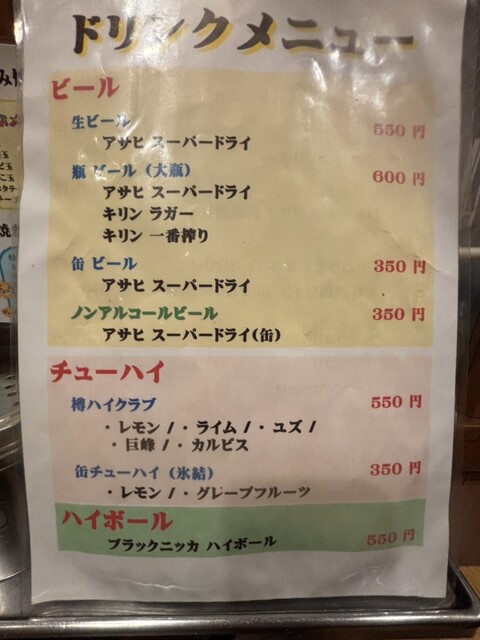 ドリンクメニュー
ビール
生ビール 550 円
アサヒ スーパードライ
瓶 ビール (大瓶) 600 円
アサヒ スーパードライ
キリン ラガー
キリン 一番搾り
缶 ビール 350 円
アサヒ スーパードライ
ノンアルコールビール 350 円
アサヒ スーパードライ(缶)
チューハイ
樽ハイクラブ 550 円
・レモン /・ライム /・ユズ /
・巨峰 /・カルピス
缶チューハイ (氷結) 350 円
・レモン /・グレープフルーツ
ハイボール
ブラックニッカ ハイボール 550 円